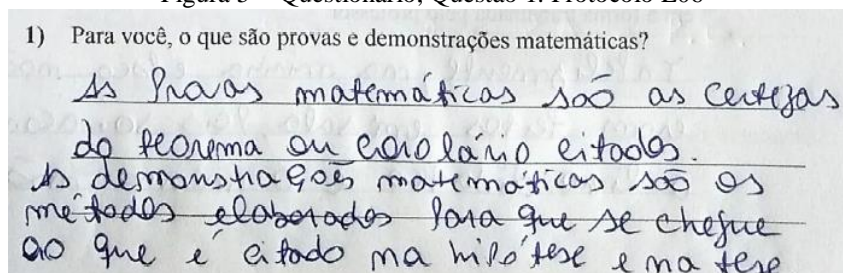 Figura 3 – Questionário, Questão 1: Protocolo E06
1) Para você, o que são provas e demonstrações matemáticas?
As Provas matemáticas são as certezas
do teorema ou corolário citados.
As demonstrações matemáticas são os
métodos elaborados para que se chegue
ao que é citado na hipótese e na tese